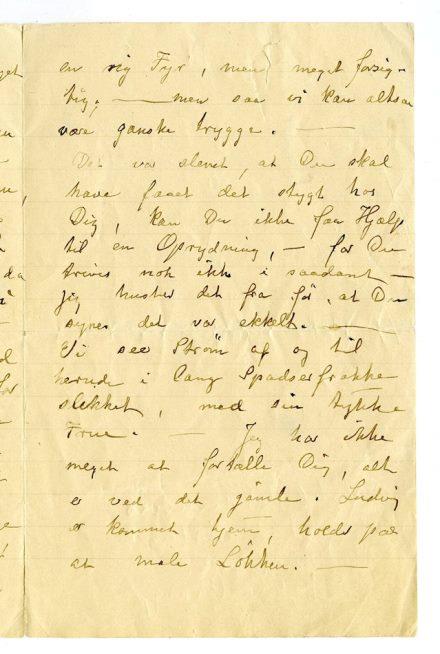 en rig Fyr, men meget forsig-
tig; — men saa vi kan altsaa
være ganske trygge. —
Det var slemt, at Du skal
have faaet det stygt hos
Dig, kan Du ikke faa Hjælp
til en Oprydning, — for Du
trives nok ikke i saadant —
jeg husker det fra før, at Du
synes det var ekkelt. —
Vi see Strøm af og til
herude i lang Spadserfrakke
slukket, med sin tykke
Frue. — Jeg har ikke
meget at fortælle Dig, alt
er ved det gamle. Ludvig
er kommet hjem, holder paa
at male Løkken. —